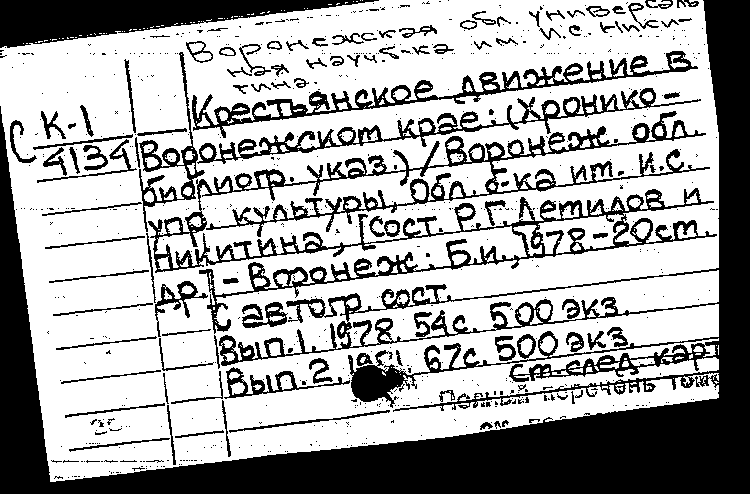 Воронежская обл. универсаль
ная науч. б-ка им. И.С. Ники-
тина.
Крестьянское движение в
С К-1
4134
Воронежском крае: (Хронико-
библиогр. указ.) / Воронеж. обл.
упр. культуры, Обл. б-ка им. И.С.
Никитина; [Сост. Р.Г. Демидов и
др.] - Воронеж: Б.и., 1978.-20 ст.
С автогр. сост.
Вып.1. 1978. 54с. 500 экз.
Вып.2. 1981. 67с. 500 экз.
ст. след. карт
Полный перечень томо